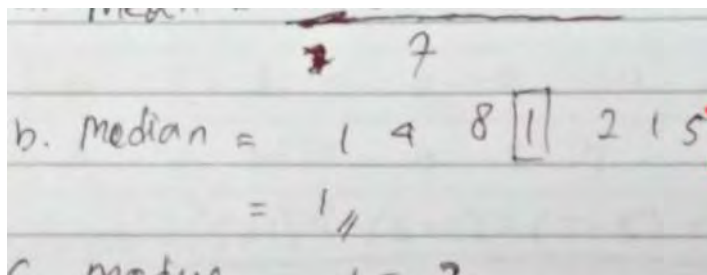 7
b. Median = 1 4 8 1 2 1 5
= 1